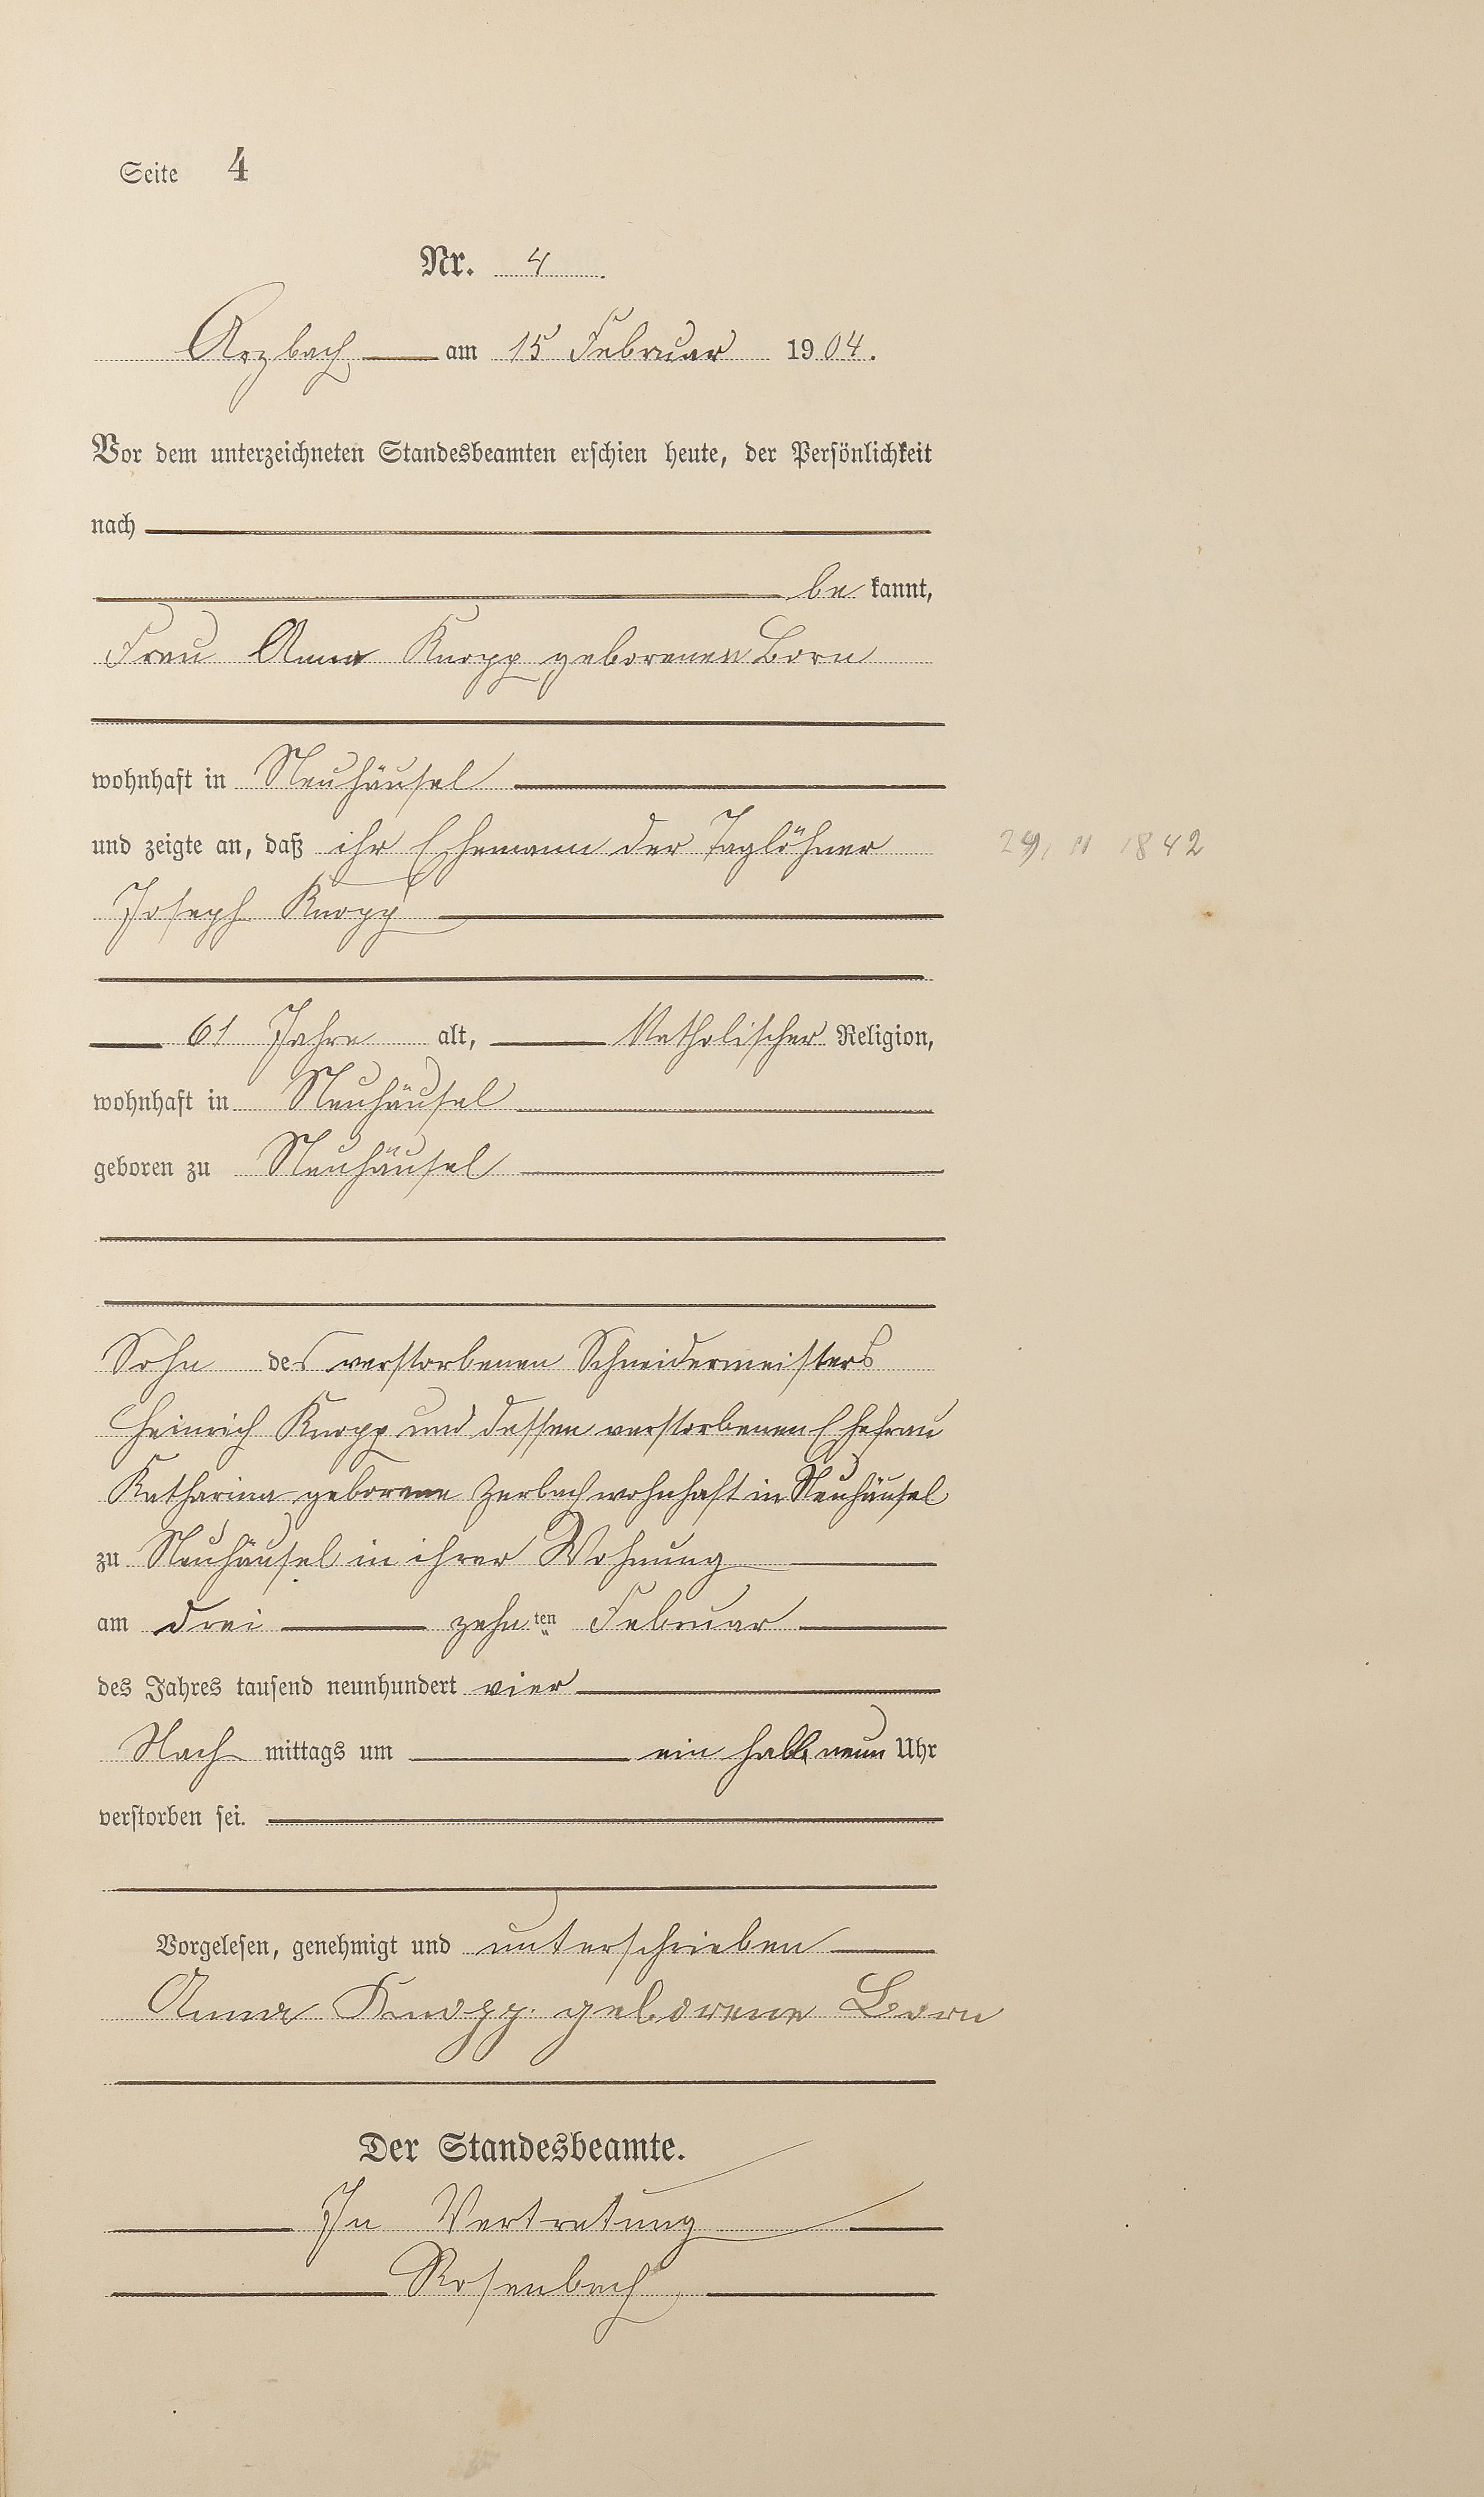 Seite 4
Nr. 4.
Arzbach am 15 Februar 1904.
Vor dem unterzeichneten Standesbeamten erschien heute, der Persönlichkeit
nach
be kannt,
Frau Anna Knopp geborenen Born
wohnhaft in Neuhäusel
und zeigte an, daß ihr Ehemann der Taglöhner
29, 11 1842
Joseph Knopp
61 Jahre alt, Katholischer Religion,
wohnhaft in Neuhäusel
geboren zu Neuhäusel
Sohn des verstorbenen Schneidermeisters
Heinrich Knopp und dessen verstorbenen Ehefrau
Katharina geborene Zerbach wohnhaft in Neuhäusel
zu Neuhäusel in ihrer Wohnung
am drei zehn ten Februar
des Jahres tausend neunhundert vier
Nach mittags um ein halb neun Uhr
verstorben sei.
Vorgelesen, genehmigt und unterschrieben
Anna Knopp geborene Born
Der Standesbeamte.
In Vertretung
Rosenbach